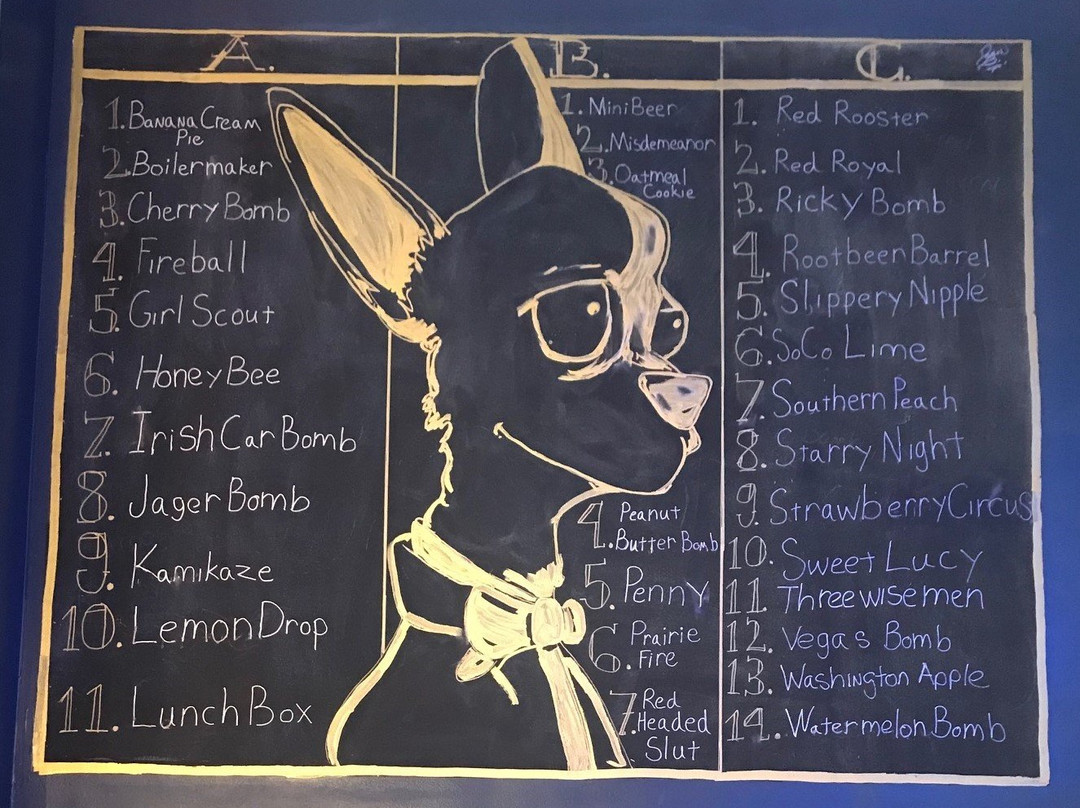 A.
1. Banana Cream
Pie
2. Boilermaker
3. Cherry Bomb
4. Fireball
5. Girl Scout
6. Honey Bee
7. Irish Car Bomb
8. Jager Bomb
9. Kamikaze
10. Lemon Drop
11. Lunch Box
B.
1. Mini Beer
2. Misdemeanor
3. Oatmeal
Cookie
4. Peanut
Butter Bomb
5. Penny
6. Prairie
Fire
7. Red
Headed
Slut
C.
1. Red Rooster
2. Red Royal
3. Ricky Bomb
4. Rootbeen Barrel
5. Slippery Nipple
6. SoCo Lime
7. Southern Peach
8. Starry Night
9. Strawberry Circus
10. Sweet Lucy
11. Three wise men
12. Vegas Bomb
13. Washington Apple
14. Watermelon Bomb